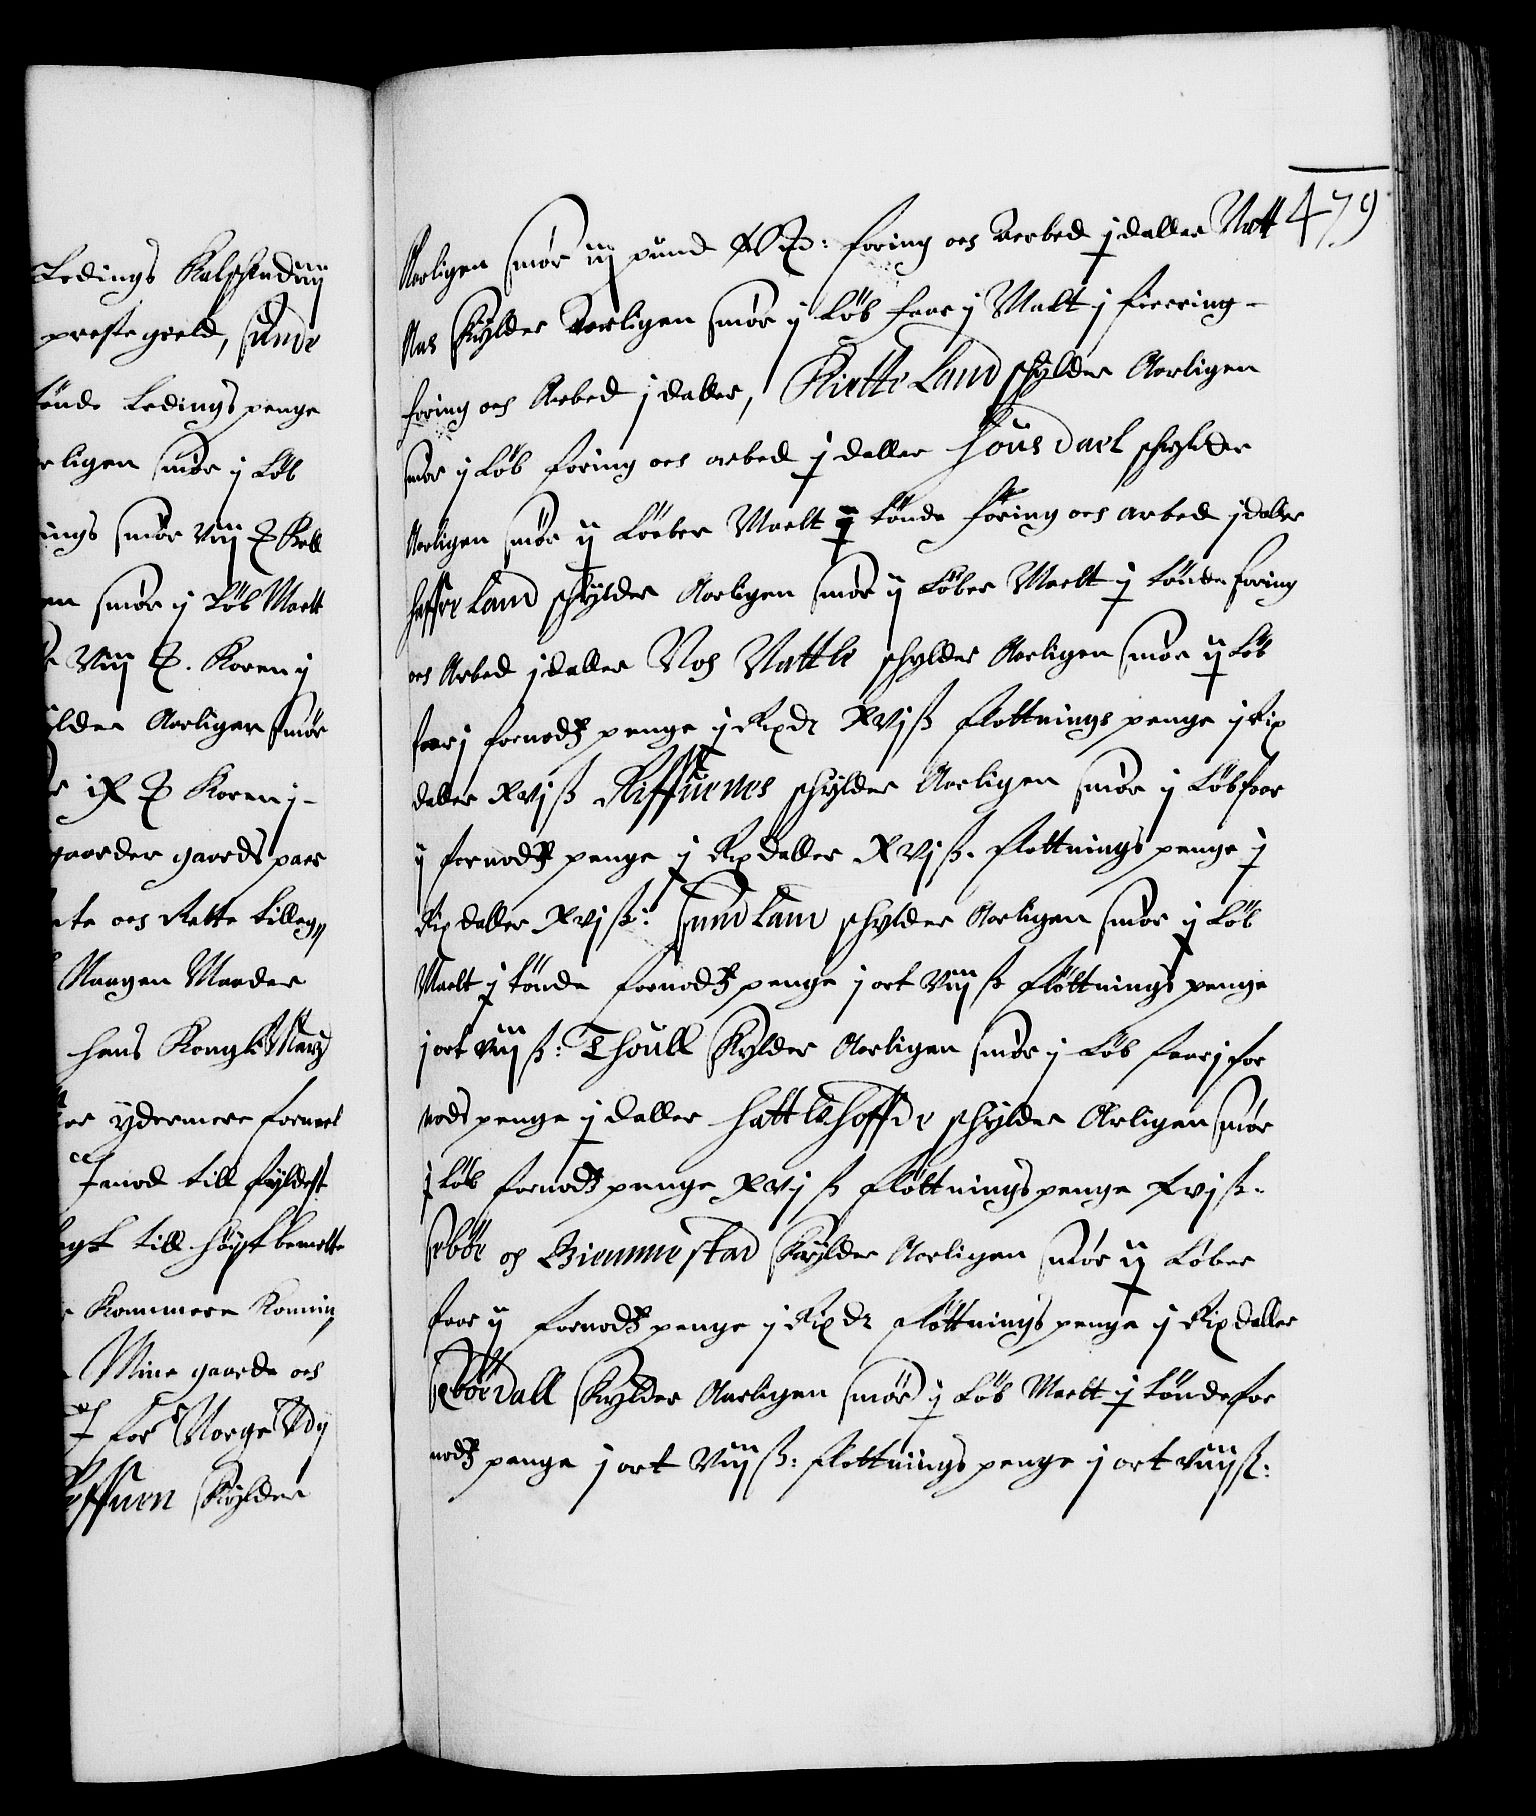 Ledings Kalfskind iiij
prestegield, sinde
tönde Ledings penge
rligen smör j Löb
ings smör viij
en smör j Löb Maelt
viij Koren j
ylder Aarligen smör
ix Koren j
gaarder gaards paer
te och Rette tilleg
Naagen Maader
hans Kongl: May
er ydermere
Imod till fyldest
till höystbemelte
Kommere Konnin
Mine gaarde och
for Norge Udj
ffuen Skylder
479
Aarligen smör iij pund foring och Aerbed j daller Natt
Aas Skylder Aarligen smör j Löb faar j Malt j fierring
foring och Arbed j daller, Kiette Land schylder Aarligen
smör j Löb foring och arbed j daller Housdael schylder
Aarligen smör ij Lööber Maelt j tönde föring och arbed j daller
haffreLand schylder Aarligen smör ij Löber Maelt j tönde foring
och Arbed j daller Nos Nattle schylder Aarligen smör ij Löb
faar j fornodz penge j Rixdr xvj ß flottnings penge j Rix
daller xvj ß Riffuenes schylder Aarligen smör j Löb faar
j fornodz penge j Rixdaller xvj ß. flottnings penge j
Rixdaller xvj ß: SundLand schylder Aarligen smör j Löb
Maelt j tönde fornodz penge j ort viij ß flöttnings penge
j ort viij ß: Thoull Skylder Aarligen smör j Löb faar j for
nods penge j daller hattlehoffde schylder Arligen smör
j Löb fornodz penge xvj ß flöttnings penge xvj ß.
Seböe och Biennestad Skylder Aarligen smör ij Löber
faar ij fornodz penge j Rixdr flöttnings penge j Rixdaller
Seböedall Skylder Aarligen smör j Löb Maelt j tönde for
nodz penge j ort viij ß: flottnings penge j ort viij ß: